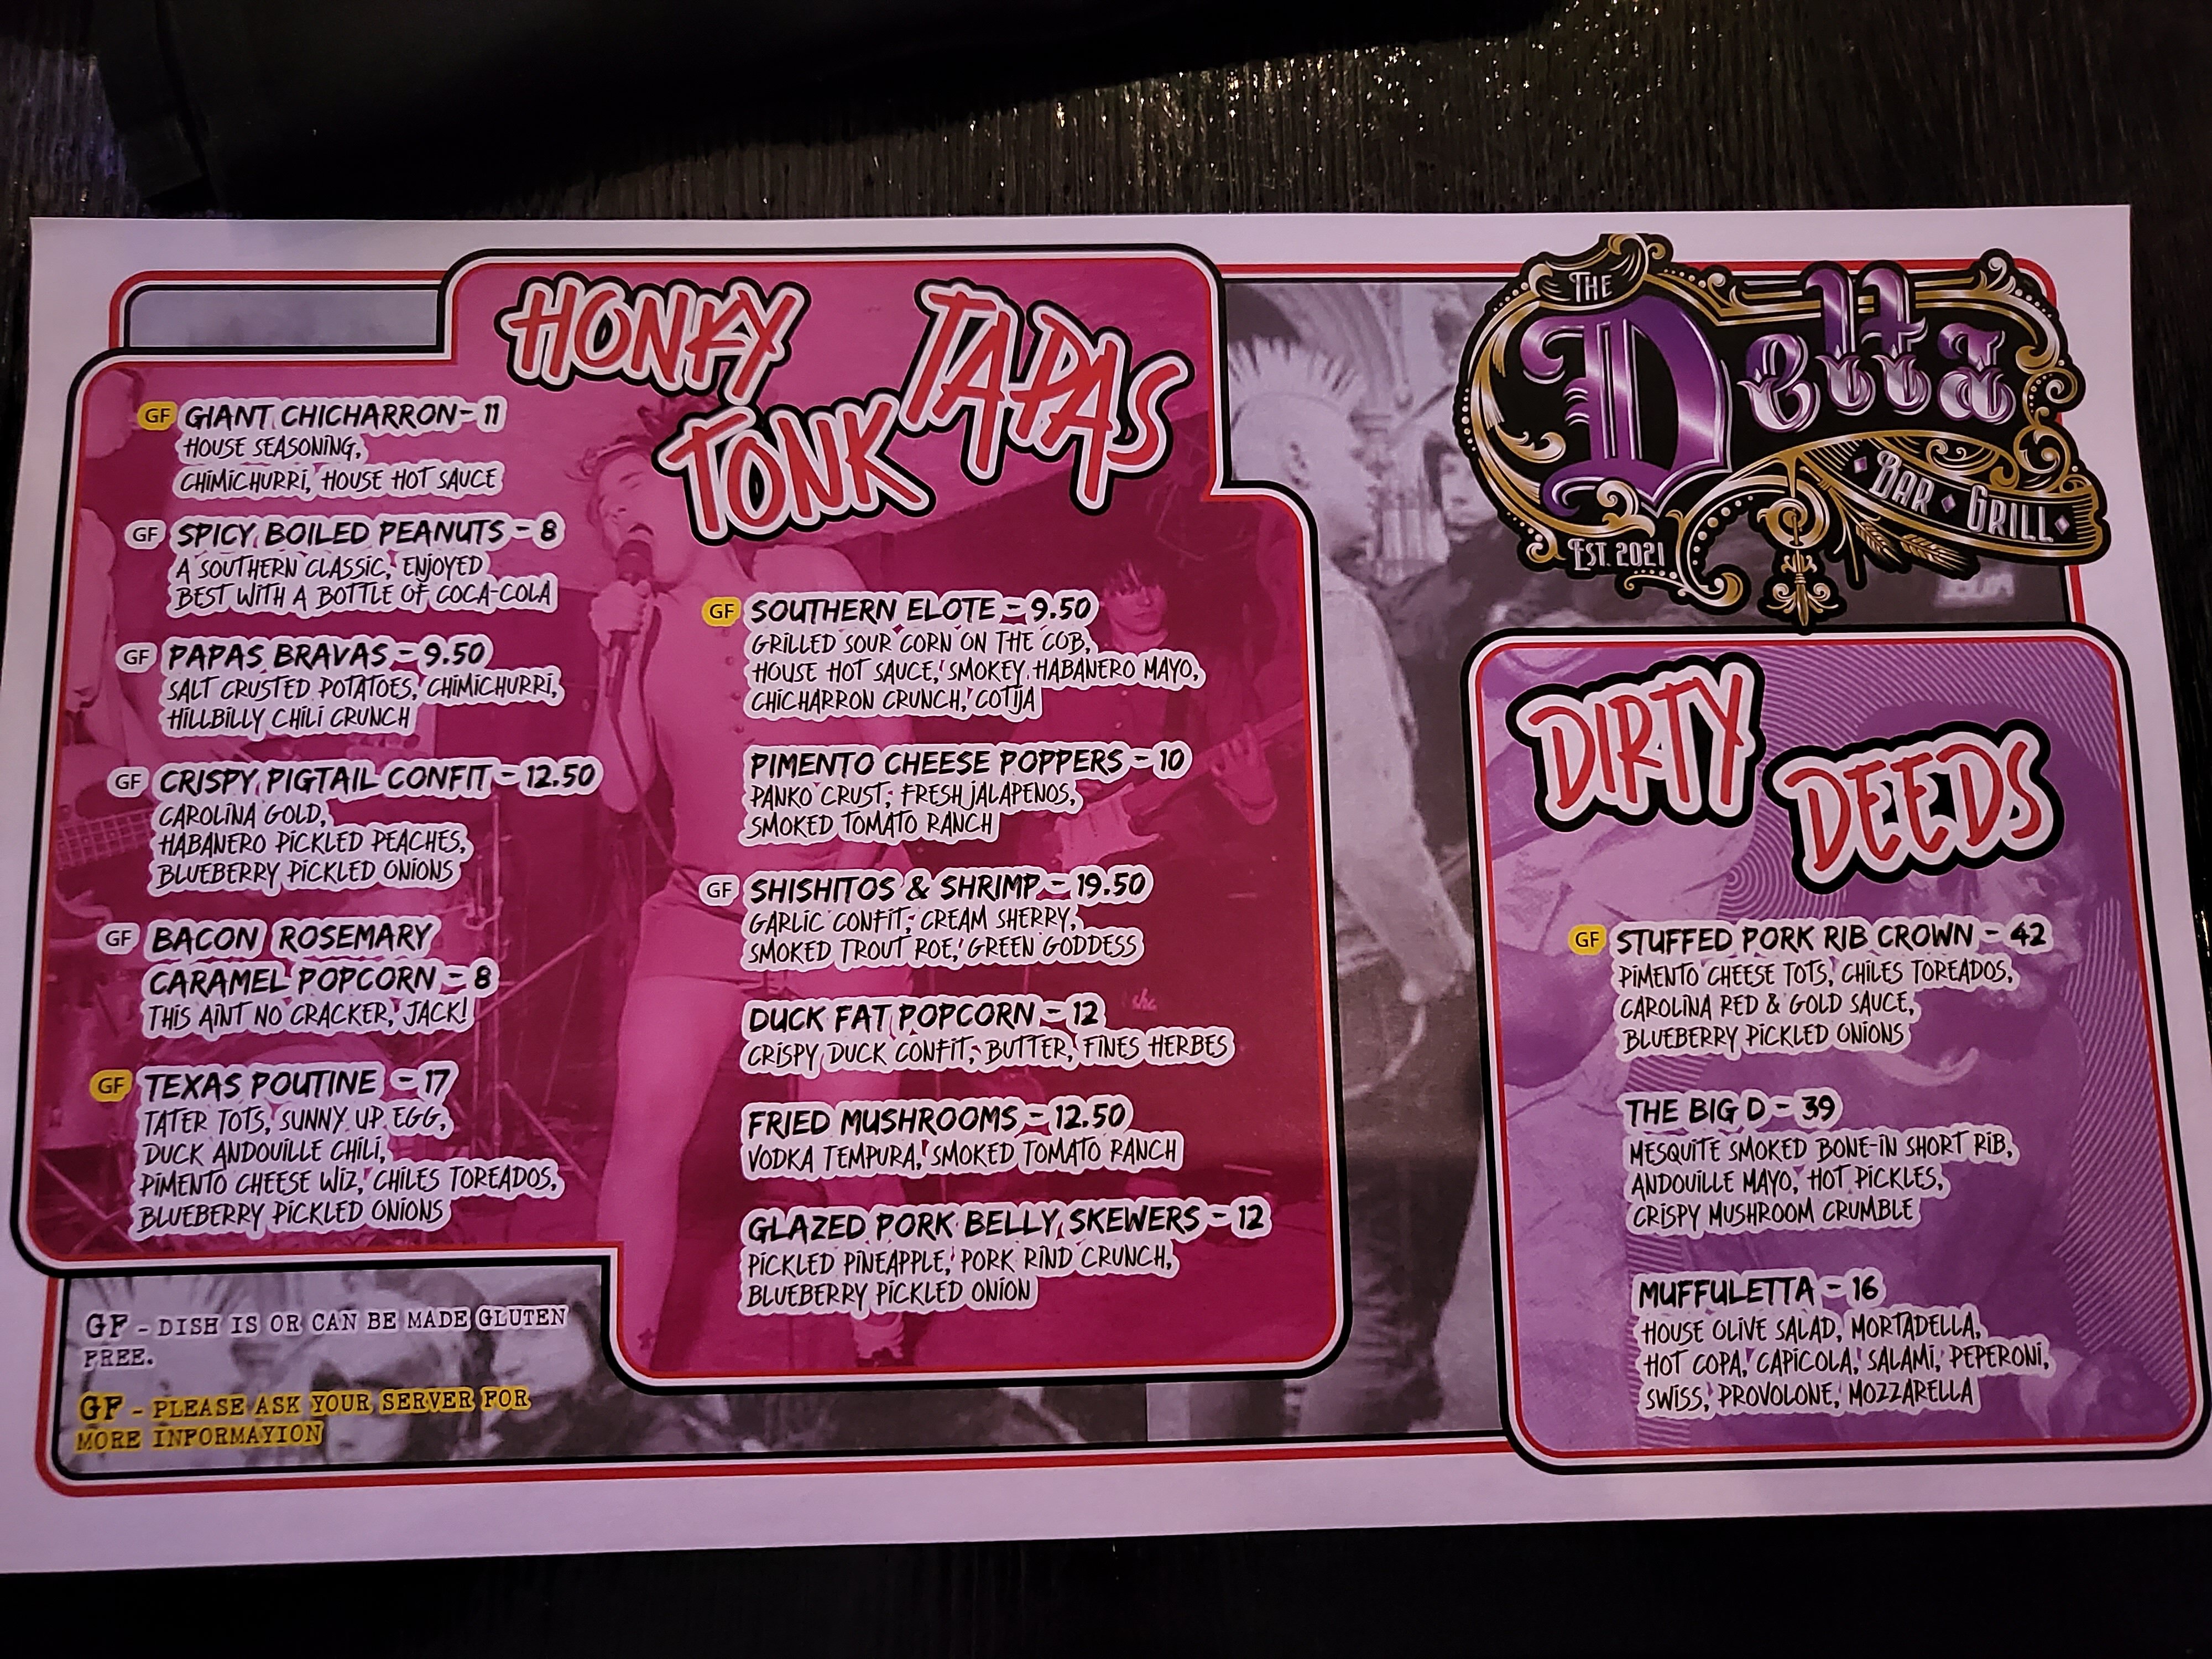 HONKY
TONK
TAPAS
GF GIANT CHICHARRON - 11
HOUSE SEASONING,
CHIMICHURRI, HOUSE HOT SAUCE
GF SPICY BOILED PEANUTS - 8
A SOUTHERN CLASSIC, ENJOYED
BEST WITH A BOTTLE OF COCA-COLA
GF PAPAS BRAVAS - 9.50
SALT CRUSTED POTATOES, CHIMICHURRI,
HILLBILLY CHILI CRUNCH
GF CRISPY PIGTAIL CONFIT - 12.50
CAROLINA GOLD,
HABANERO PICKLED PEACHES,
BLUEBERRY PICKLED ONIONS
GF BACON ROSEMARY
CARAMEL POPCORN - 8
THIS AINT NO CRACKER, JACK!
GF TEXAS POUTINE - 17
TATER TOTS, SUNNY UP EGG,
DUCK ANDOUILLE CHILI,
PIMENTO CHEESE WIZ, CHILES TOREADOS,
BLUEBERRY PICKLED ONIONS
GF SOUTHERN ELOTE - 9.50
GRILLED SOUR CORN ON THE COB,
HOUSE HOT SAUCE, SMOKEY HABANERO MAYO,
CHICHARRON CRUNCH, COTIJA
PIMENTO CHEESE POPPERS - 10
PANKO CRUST, FRESH JALAPENOS,
SMOKED TOMATO RANCH
GF SHISHITOS & SHRIMP - 19.50
GARLIC CONFIT, CREAM SHERRY,
SMOKED TROUT ROE, GREEN GODDESS
DUCK FAT POPCORN - 12
CRISPY DUCK CONFIT, BUTTER, FINES HERBES
FRIED MUSHROOMS - 12.50
VODKA TEMPURA, SMOKED TOMATO RANCH
GLAZED PORK BELLY SKEWERS - 12
PICKLED PINEAPPLE, PORK RIND CRUNCH,
BLUEBERRY PICKLED ONION
GF - DISH IS OR CAN BE MADE GLUTEN
FREE.
GF - PLEASE ASK YOUR SERVER FOR
MORE INFORMAYION
THE
Delta
BAR GRILL
EST. 2021
DIRTY
DEEDS
GF STUFFED PORK RIB CROWN - 42
PIMENTO CHEESE TOTS, CHILES TOREADOS,
CAROLINA RED & GOLD SAUCE,
BLUEBERRY PICKLED ONIONS
THE BIG D - 39
MESQUITE SMOKED BONE-IN SHORT RIB,
ANDOUILLE MAYO, HOT PICKLES,
CRISPY MUSHROOM CRUMBLE
MUFFULETTA - 16
HOUSE OLIVE SALAD, MORTADELLA,
HOT COPA, CAPICOLA, SALAMI, PEPERONI,
SWISS, PROVOLONE, MOZZARELLA